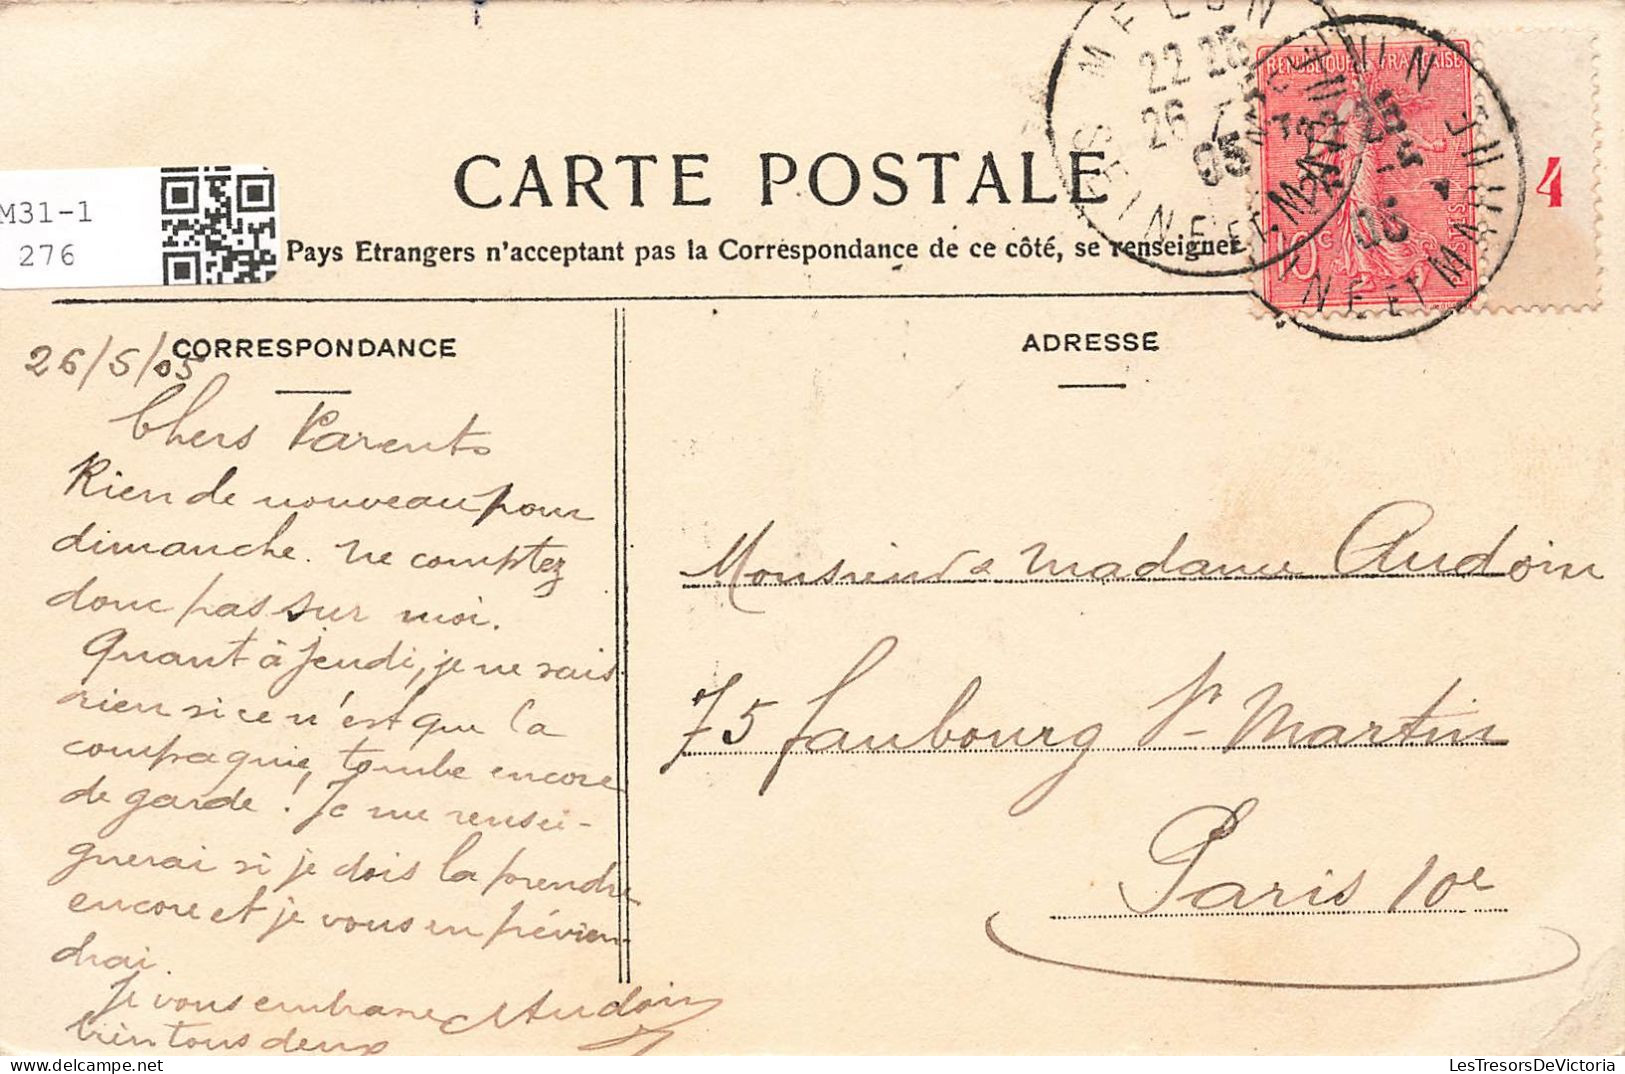 M31-1
276
CARTE POSTALE
Pays Etrangers n'acceptant pas la Correspondance de ce côté, se renseigner
REPUBLIQUE FRANÇAISE
POSTES
10 c
4
MELUN
22 25
26 5
05
SEINE ET MARNE
CORRESPONDANCE
ADRESSE
26/5/05
Chers Parents
Rien de nouveau pour
dimanche. Ne comptez
donc pas sur moi.
Quant à jeudi, je ne sais
rien si ce n'est que la
compagnie, tombe encore
de garde ! Je me rensei-
gnerai si je dois la prendre
encore et je vous en prévien-
drai.
Je vous embrasse
bien tous deux
Audoin
Monsieur & Madame Audoin
75 faubourg St Martin
Paris 10e
LesTresorsDeVictoria